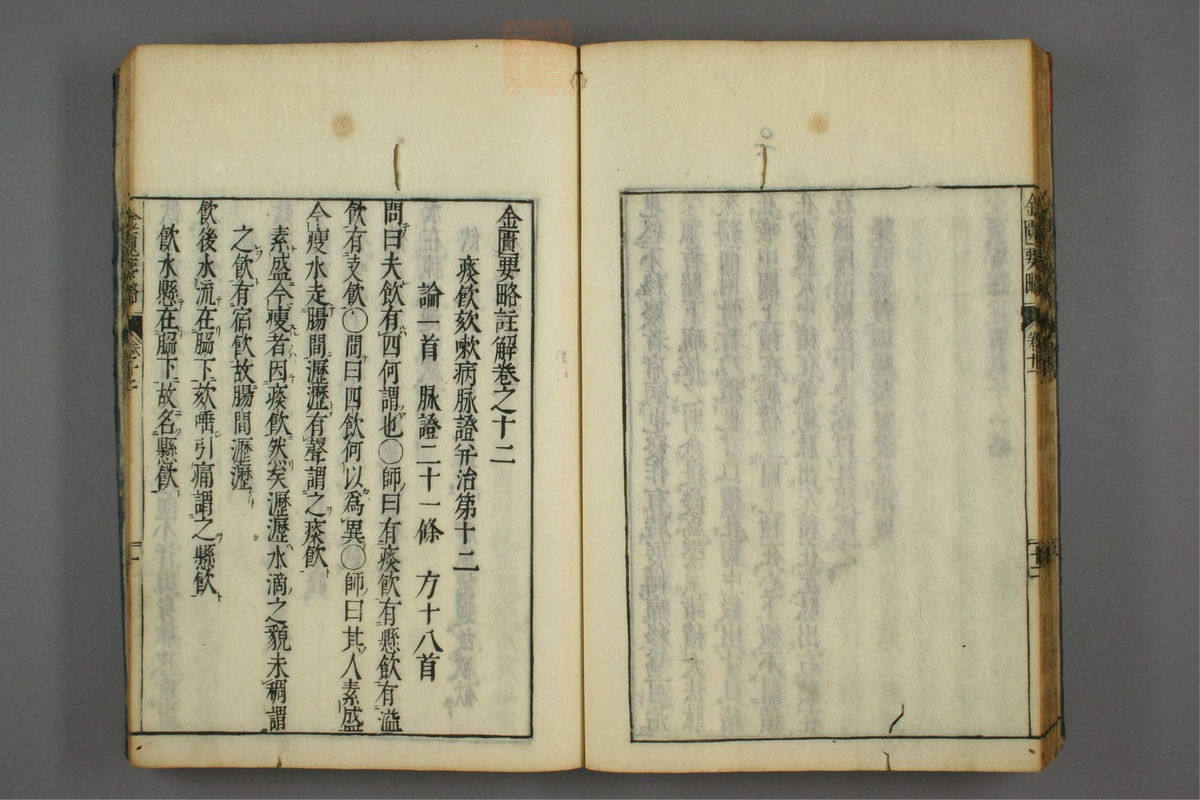 金匱要略 卷十一
金匱要略註解卷之十二
痰飲欬嗽病脉證并治第十二
論一首 脉證二十一條 方十八首
問曰夫飲有四何謂也○師曰有痰飲有懸飲有溢
飲有支飲○問曰四飲何以爲異○師曰其人素盛
今瘦水走腸間瀝瀝有聲謂之痰飲
素盛今瘦者因痰飲然矣瀝瀝水滴之貌未稠謂
之飲有宿飲故腸間瀝瀝
飲後水流在脇下欬唾引痛謂之懸飲
飲水懸在脇下故名懸飲
金匱要略